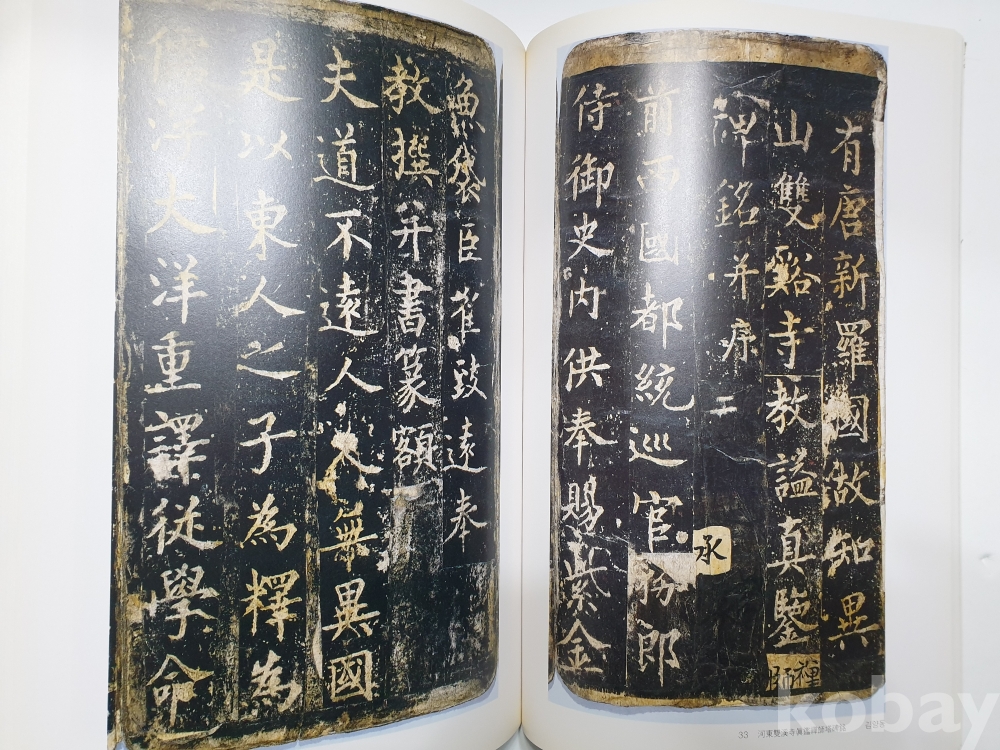 有唐新羅國故知異
山雙谿寺教謚真鑒禪師
碑銘并序
前西國都統巡官承務郎
侍御史內供奉賜紫金
魚袋臣崔致遠奉
教撰并書篆額
夫道不遠人人無異國
是以東人之子為釋為
儒浮大洋重譯從學命
33
kobay